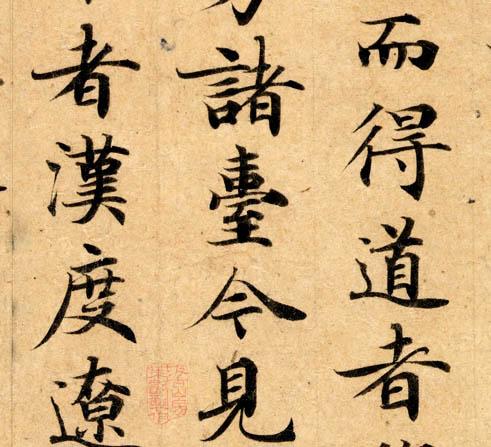 而得道者
諸臺今見
者漢度遼